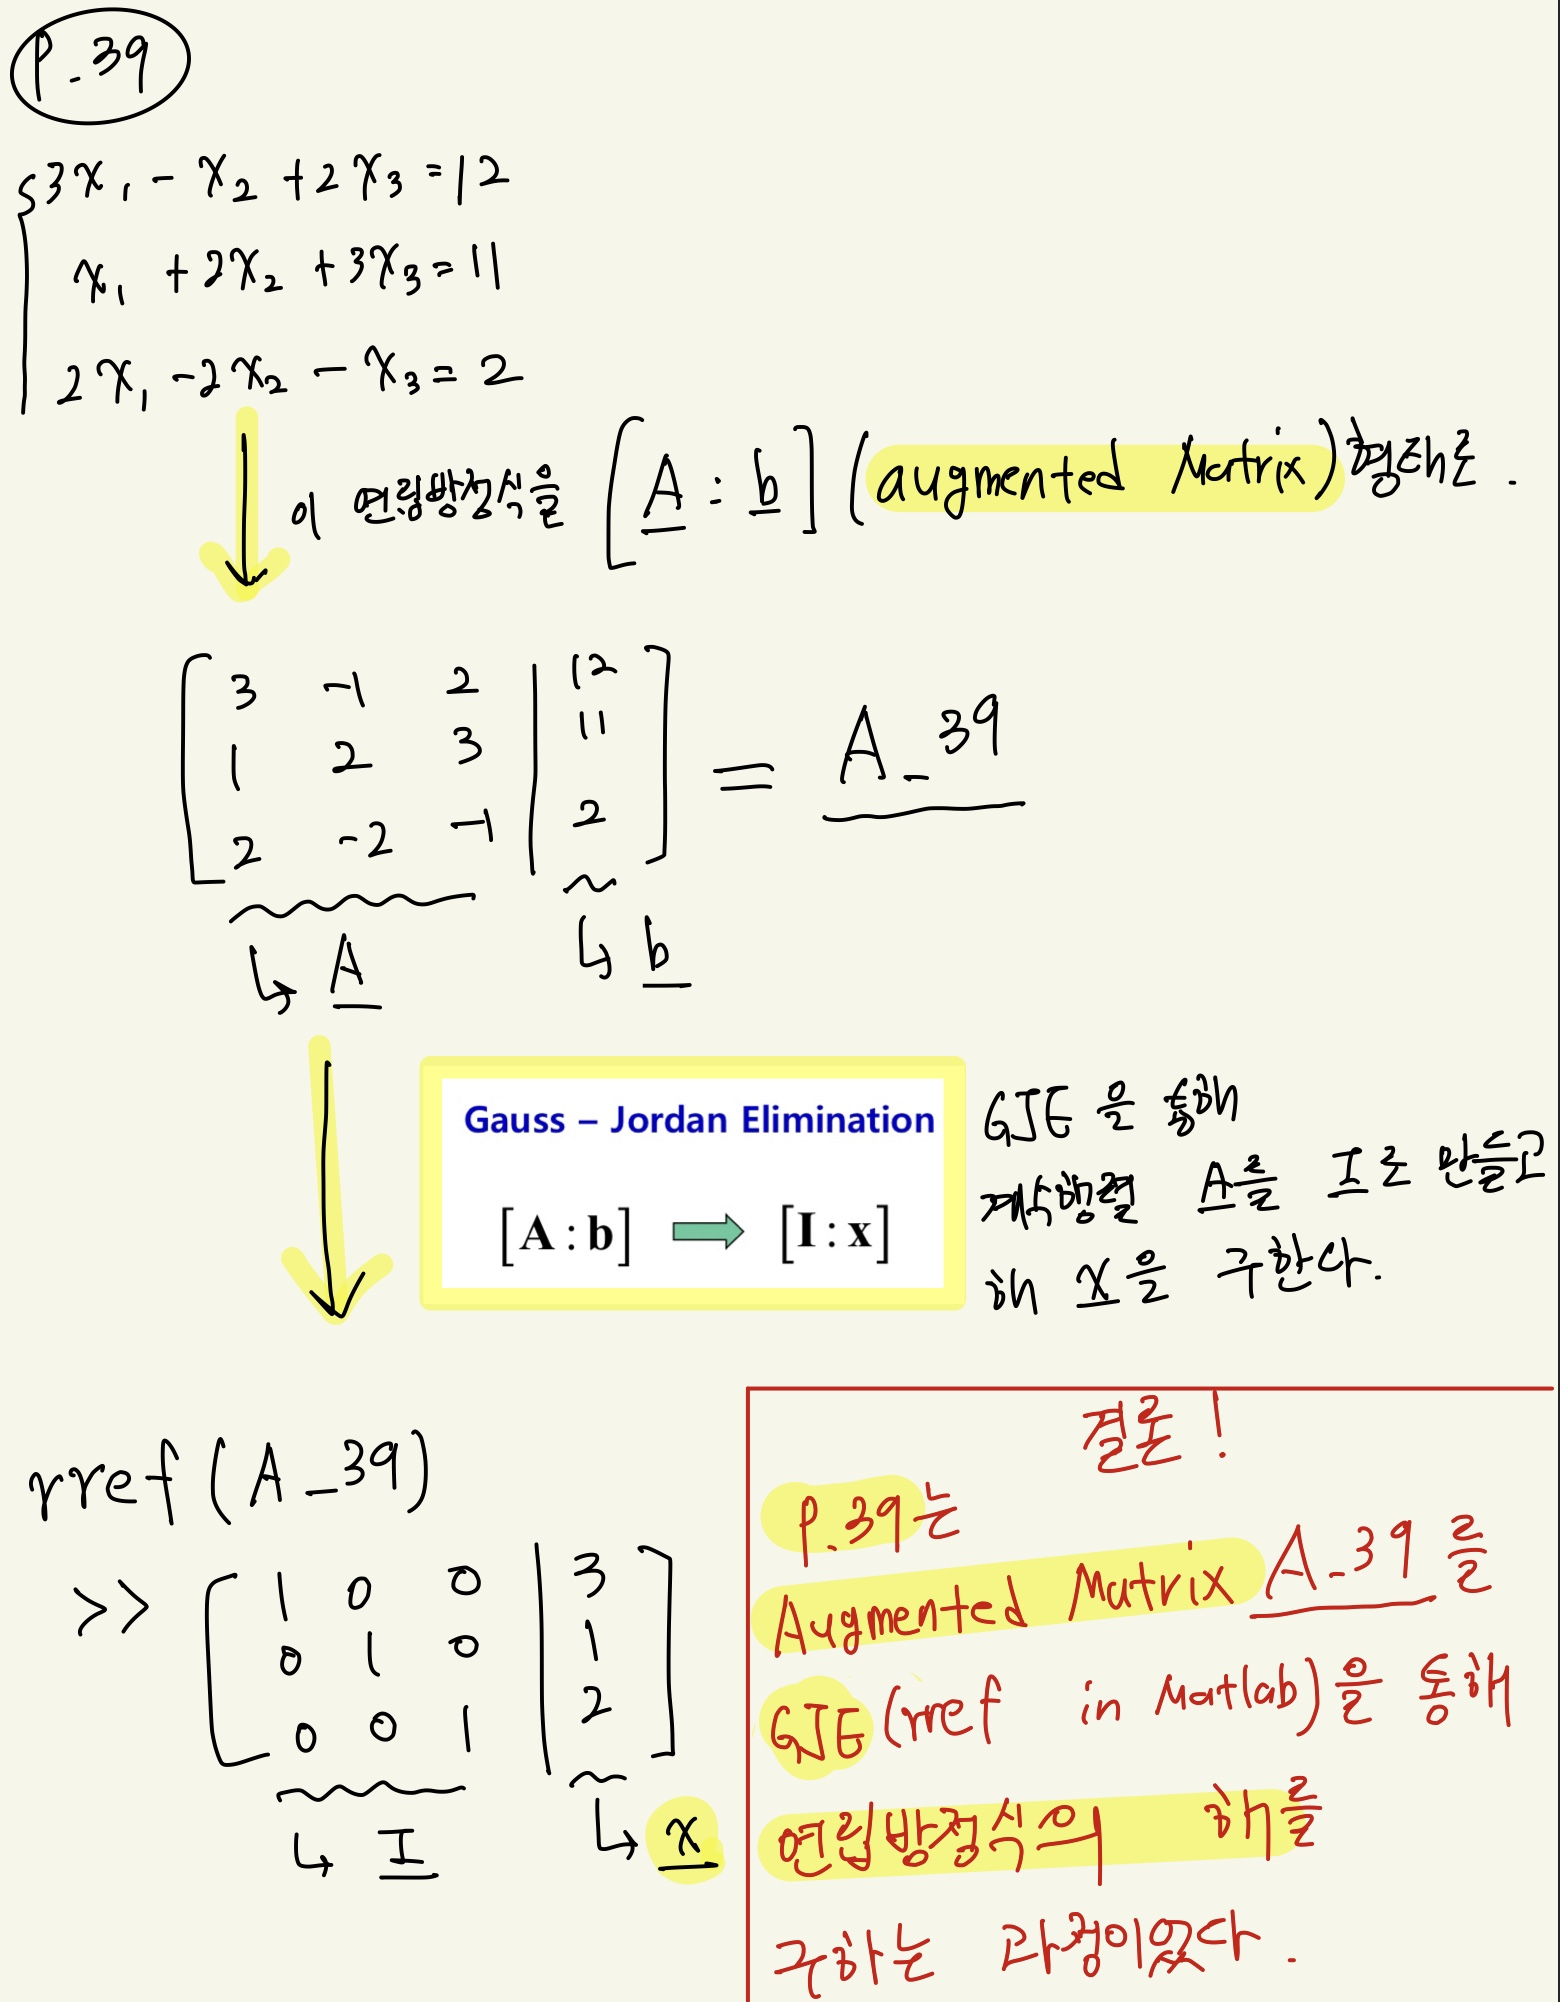 P.39
3x₁ - x₂ + 2x₃ = 12
x₁ + 2x₂ + 3x₃ = 11
2x₁ - 2x₂ - x₃ = 2
이 연립방정식을 [A : b] (augmented Matrix)형태로.
3 -1 2 | 12
1 2 3 | 11
2 -2 -1 | 2
= A_39
↳ A ↳ b
Gauss – Jordan Elimination
[A : b] ➡ [I : x]
GJE 을 통해
계수행렬 A를 I로 만들고
해 x을 구한다.
rref (A_39)
>> [1 0 0 | 3
0 1 0 | 1
0 0 1 | 2]
↳ I ↳ x
결론!
P.39는
Augmented Matrix A_39 를
GJE (rref in Matlab)을 통해
연립방정식의 해를
구하는 과정이었다.